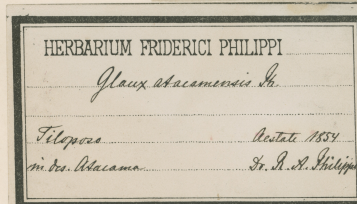 HERBARIUM FRIDERICI PHILIPPI
Glaux atacamensis Ph.
Tiloposo Aestate 1854
in des. Atacama Dr. R. A. Philippi